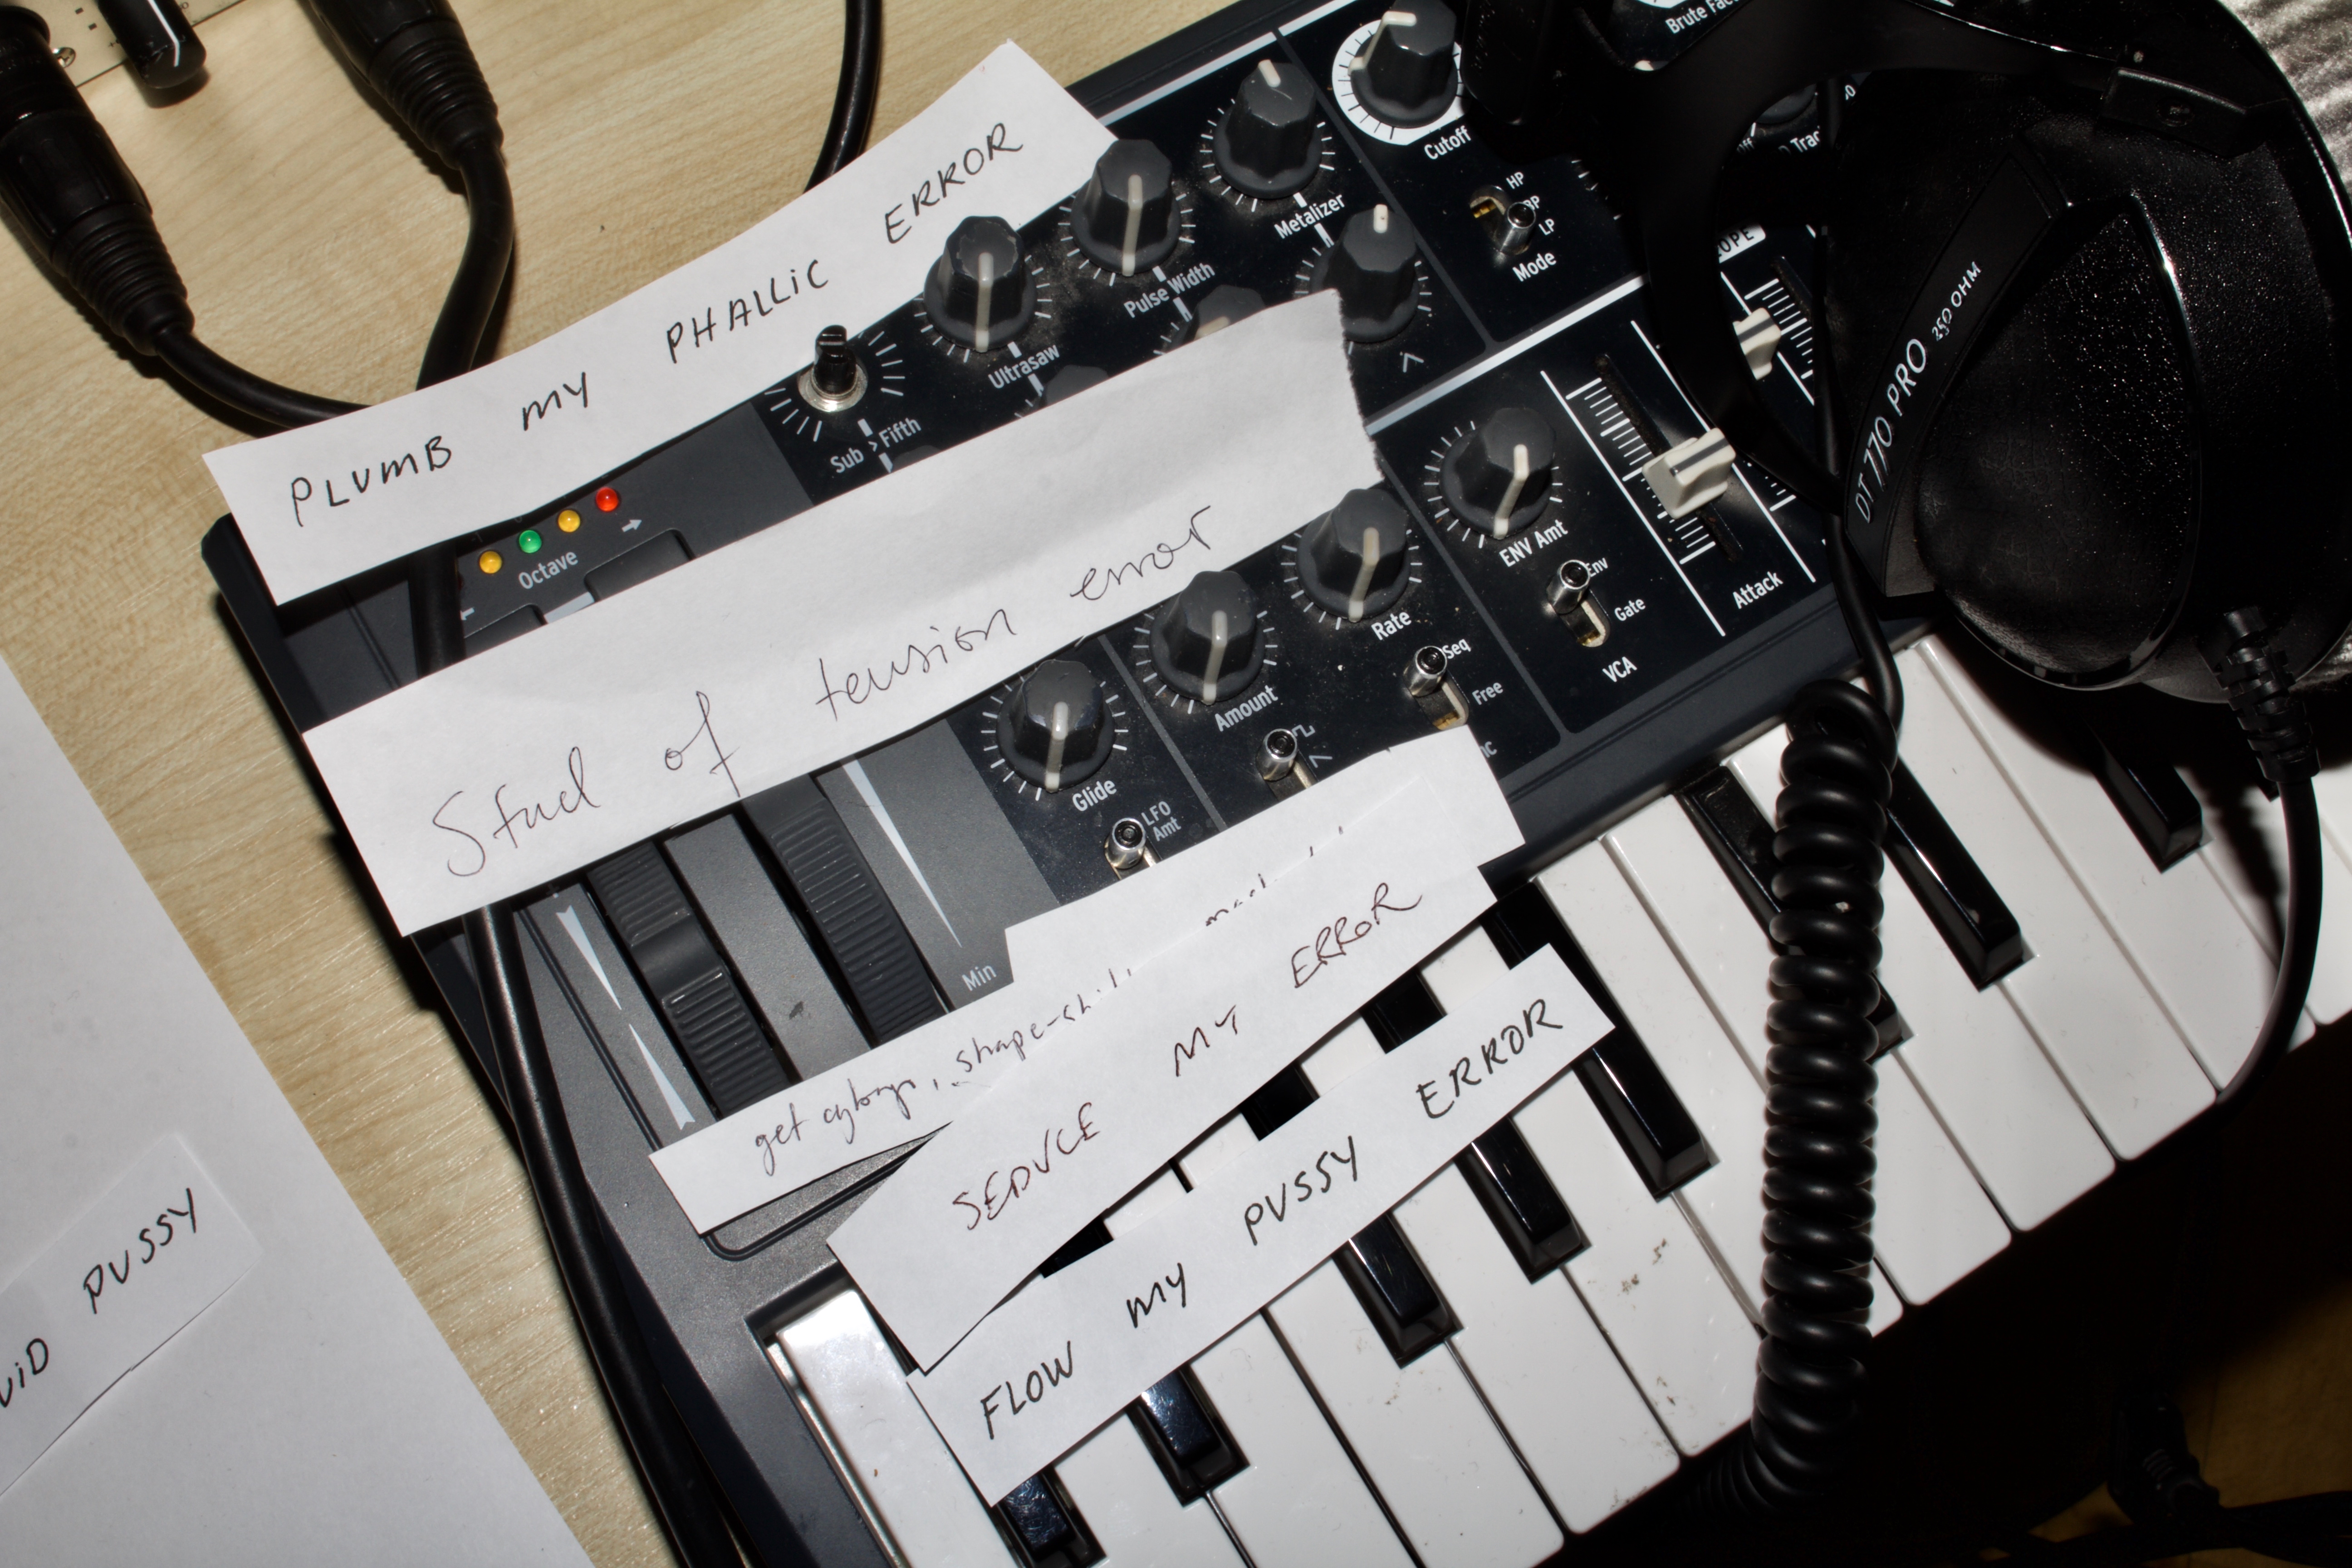 Brute
PLUMB MY PHALLIC ERROR
Cutoff
Metalizer
HP
LP
Mode
Pulse Width
Ultrasaw
Sub > Fifth
DT 770 PRO 250 OHM
Octave
ENV Amt
Env
Gate
VCA
Attack
Stud of tension error
Rate
Seq
Free
Amount
Glide
LFO
Amt
Min
get cyborgs, shape-
SEDUCE MY ERROR
FLOW MY PUSSY ERROR
PUSSY